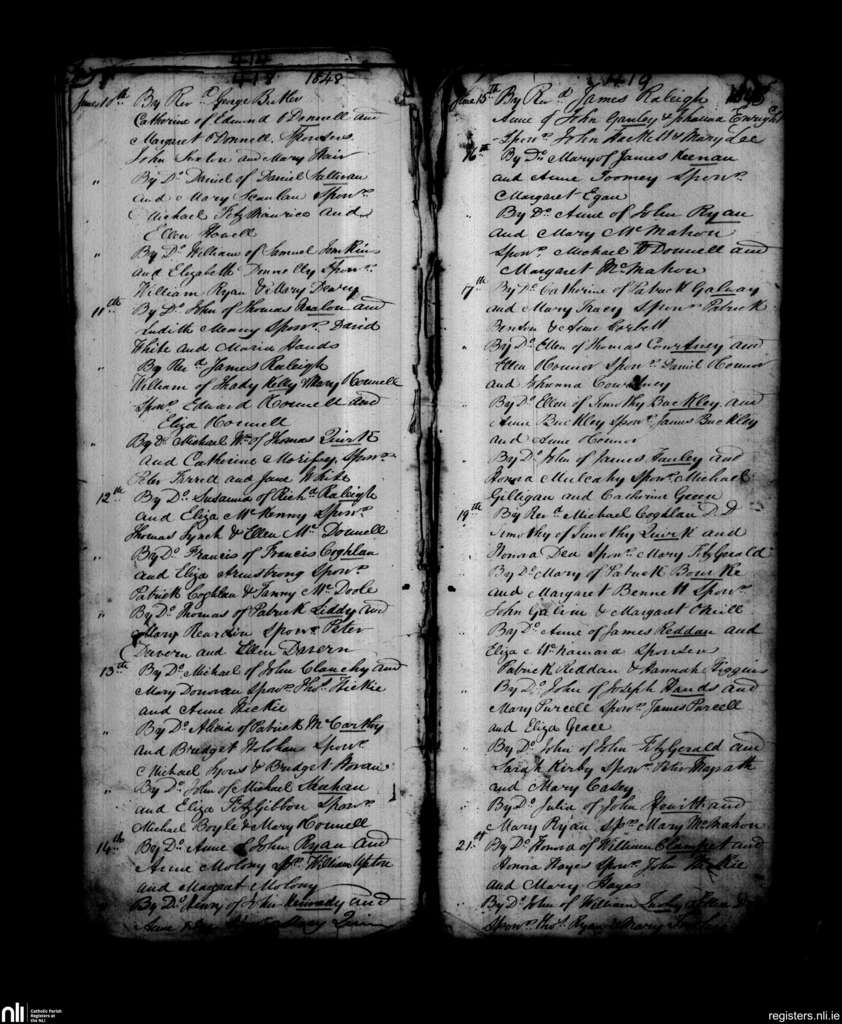 414
418 1848
June 10th By Revd. George Butler
Catherine of Edmund O'Donnell and
Margaret O'Donnell. Sponsors
John and Mary
" By Do. Daniel of Daniel Sullivan
and Mary Scanlan Sponrs.
Michael FitzMaurice and
Ellen Howell
" By Do. William of Samuel Tomkins
and Elizabeth Donnelly Sponrs.
William Ryan & Mary Deary
11th By Do. John of Thomas Realon and
Judith Meany Sponrs. David
White and Maria Hands
" By Revd. James Raleigh
William of Thady Kelly & Mary Connell
Sponrs. Edward Connell and
Eliza Connell
" By Do. Michael Wm. of Thomas Quirk
and Catherine Sponrs.
Peter Ferrell and Jane White
12th By Do. Susanna of Richd. Raleigh
and Eliza McKenny Sponrs.
Thomas Lynch & Ellen McDonnell
" By Do. Francis of Francis Coghlan
and Eliza Armstrong Sponrs.
Patrick Coghlan & Fanny McDoole
" By Do. Thomas of Patrick Liddy and
Mary Reardon Sponrs. Peter
Davern and Ellen Davern
13th By Do. Michael of John Clanchy and
Mary Donovan Sponrs. Thos. Hickie
and Anne Hickie
" By Do. Alicia of Patrick McCarthy
and Bridget Holohan Sponrs.
Michael Lyons & Bridget
" By Do. John of Michael Meehan
and Eliza FitzGibbon Sponrs.
Michael Boyle & Mary Connell
14th By Do. Anne of John Ryan and
Anne Molony Sprs. William Upton
and Margaret Molony
By Do. Henry of John Kennedy and
Anne Mary Quin
419
June 15th By Revd. James Raleigh
Anne of John Ganley & Johanna Enright
Sponrs. John Haskett & Mary Lee
16th By Do. Mary of James Keenan
and Anne Toomey Sponrs.
Margaret Egan
" By Do. Anne of John Ryan
and Mary McMahon
Sponrs. Michael O'Donnell and
Margaret McMahon
17th By Do. Catherine of Patrick Galway
and Mary Tracy Sponrs. Patrick
Benson & Anne Corbett
" By Do. Ellen of Thomas Courtney and
Ellen Connor Sponrs. Daniel Connor
and Johanna Courtney
" By Do. Ellen of Timothy Buckley and
Anne Buckley Sponrs. James Buckley
and Anne Connor
" By Do. John of James Fanley and
Honora Mulcahy Sponrs. Michael
Gilligan and Catherine Green
19th By Revd. Michael Coghlan D.D
Timothy of Timothy Quirk and
Honora Dea Sponrs. Mary FitzGerald
" By Do. Mary of Patrick Bourke
and Margaret Bennett Sponrs.
John Galvin & Margaret O'Neill
" By Do. Anne of James Reddan and
Eliza McNamara Sponsors
Patrick Reddan & Hannah Higgins
" By Do. John of Joseph Hands and
Mary Purcell Sponrs. James Purcell
and Eliza Grace
" By Do. John of John FitzGerald and
Sarah Kirby Sponrs. Peter Magrath
and Mary Casey
" By Do. Julia of John Hewitt and
Mary Ryan Spr. Mary McMahon
21st By Do. Honora of William Clampet and
Honora Hayes Sponrs. John
and Mary Hayes
" By Do. John of William
Sponrs. Thos. Ryan & Mary
nli Catholic Parish
Registers at
the NLI
registers.nli.ie